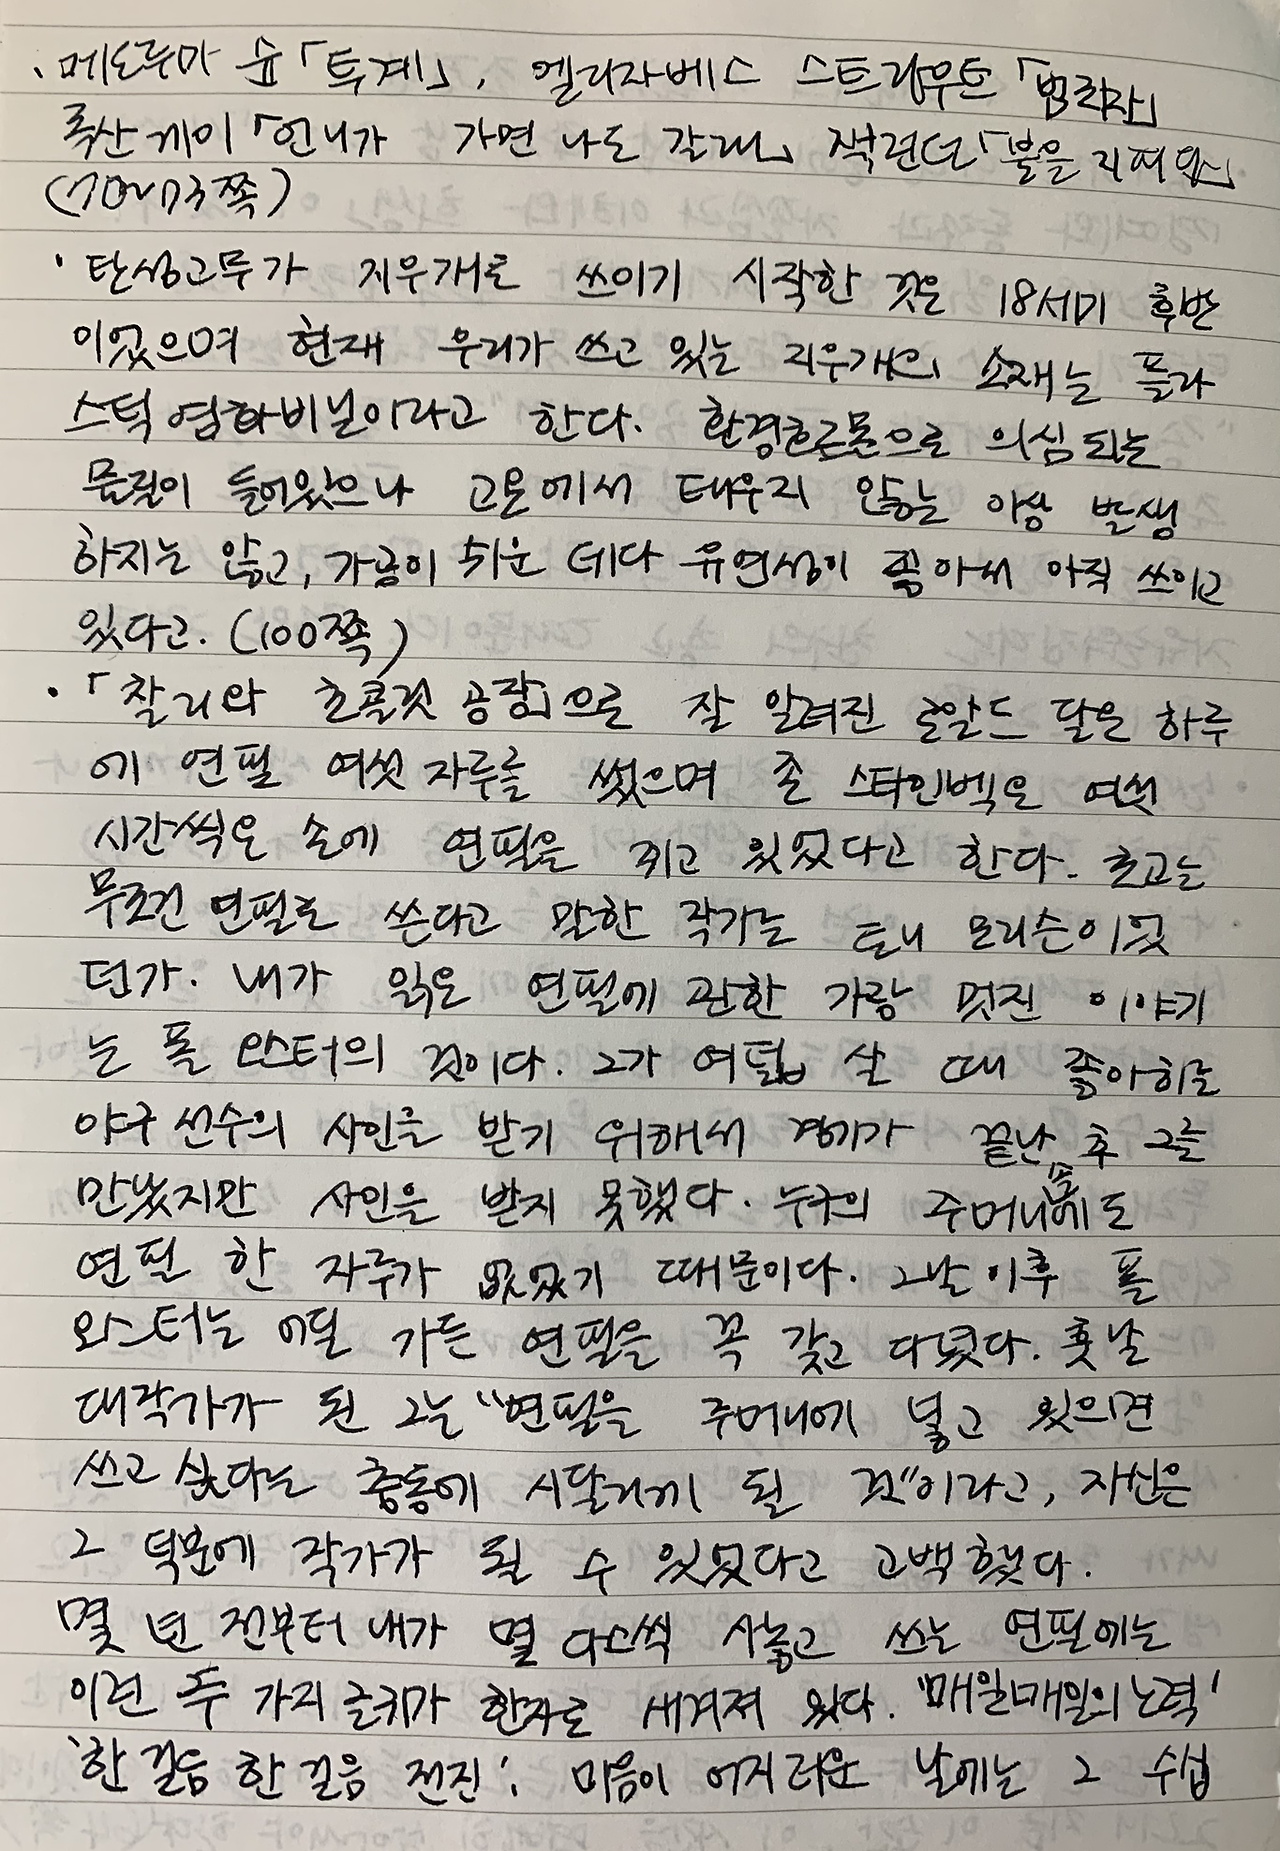 · 메도루마 슌 「투계」, 엘리자베스 스트라우트 「범죄자」
록산 게이 「언니가 가면 나도 갈래」 잭 런던 「불을 지펴와」
(70~73쪽)
· 탄성고무가 지우개로 쓰이기 시작한 것은 18세기 후반
이었으며 현재 우리가 쓰고 있는 지우개의 소재는 플라
스틱 염화비닐이라고 한다. 환경호르몬으로 의심되는
물질이 들어있으나 고온에서 태우지 않는 이상 발생
하지는 않고, 가공이 쉬운 데다 유연성이 좋아서 아직 쓰이고
있다고. (100쪽)
· 「찰리와 초콜릿 공장」으로 잘 알려진 로알드 달은 하루
에 연필 여섯 자루를 썼으며 존 스타인벡은 여섯
시간씩은 손에 연필을 쥐고 있었다고 한다. 초고는
무조건 연필로 쓴다고 말한 작가는 토니 모리슨이었
던가. 내가 읽은 연필에 관한 가장 멋진 이야기
는 폴 오스터의 것이다. 그가 여덟 살 때 좋아하는
야구 선수의 사인을 받기 위해서 경기가 끝난 후 그를
만났지만 사인을 받지 못했다. 누구의 주머니에도
연필 한 자루가 없었기 때문이다. 그날 이후 폴
오스터는 어딜 가든 연필을 꼭 갖고 다녔다. 훗날
대작가가 된 그는 "연필을 주머니에 넣고 있으면
쓰고 싶다는 충동에 시달리게 될 것"이라고, 자신은
그 덕분에 작가가 될 수 있었다고 고백했다.
몇 년 전부터 내가 몇 다스씩 사놓고 쓰는 연필에는
이런 두 가지 글귀가 한자로 새겨져 있다. '매일매일의 노력'
'한 걸음 한 걸음 전진'. 마음이 어지러운 날에는 그 수십